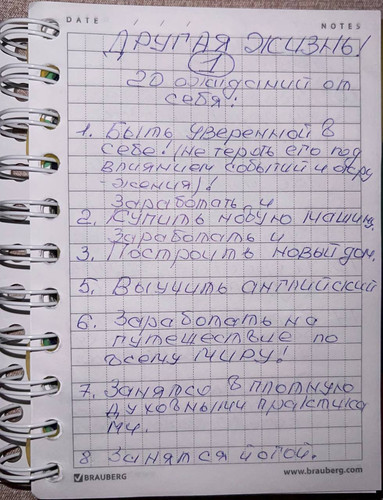 DATE / / / NOTES
ДРУГАЯ ЖИЗНЬ!
1
20 ожиданий от
себя:
1. Быть уверенной в
себе! (не терять его под
влиянием событий и окру
-жения)!
Заработать и
2. Купить новую машину.
Заработать и
3. Построить новый дом.
5. Выучить английский
6. Заработать на
путешествие по
всему миру!
7. Занятся вплотную
духовными практика
ми.
8. Занятся йогой.
BRAUBERG www.brauberg.com